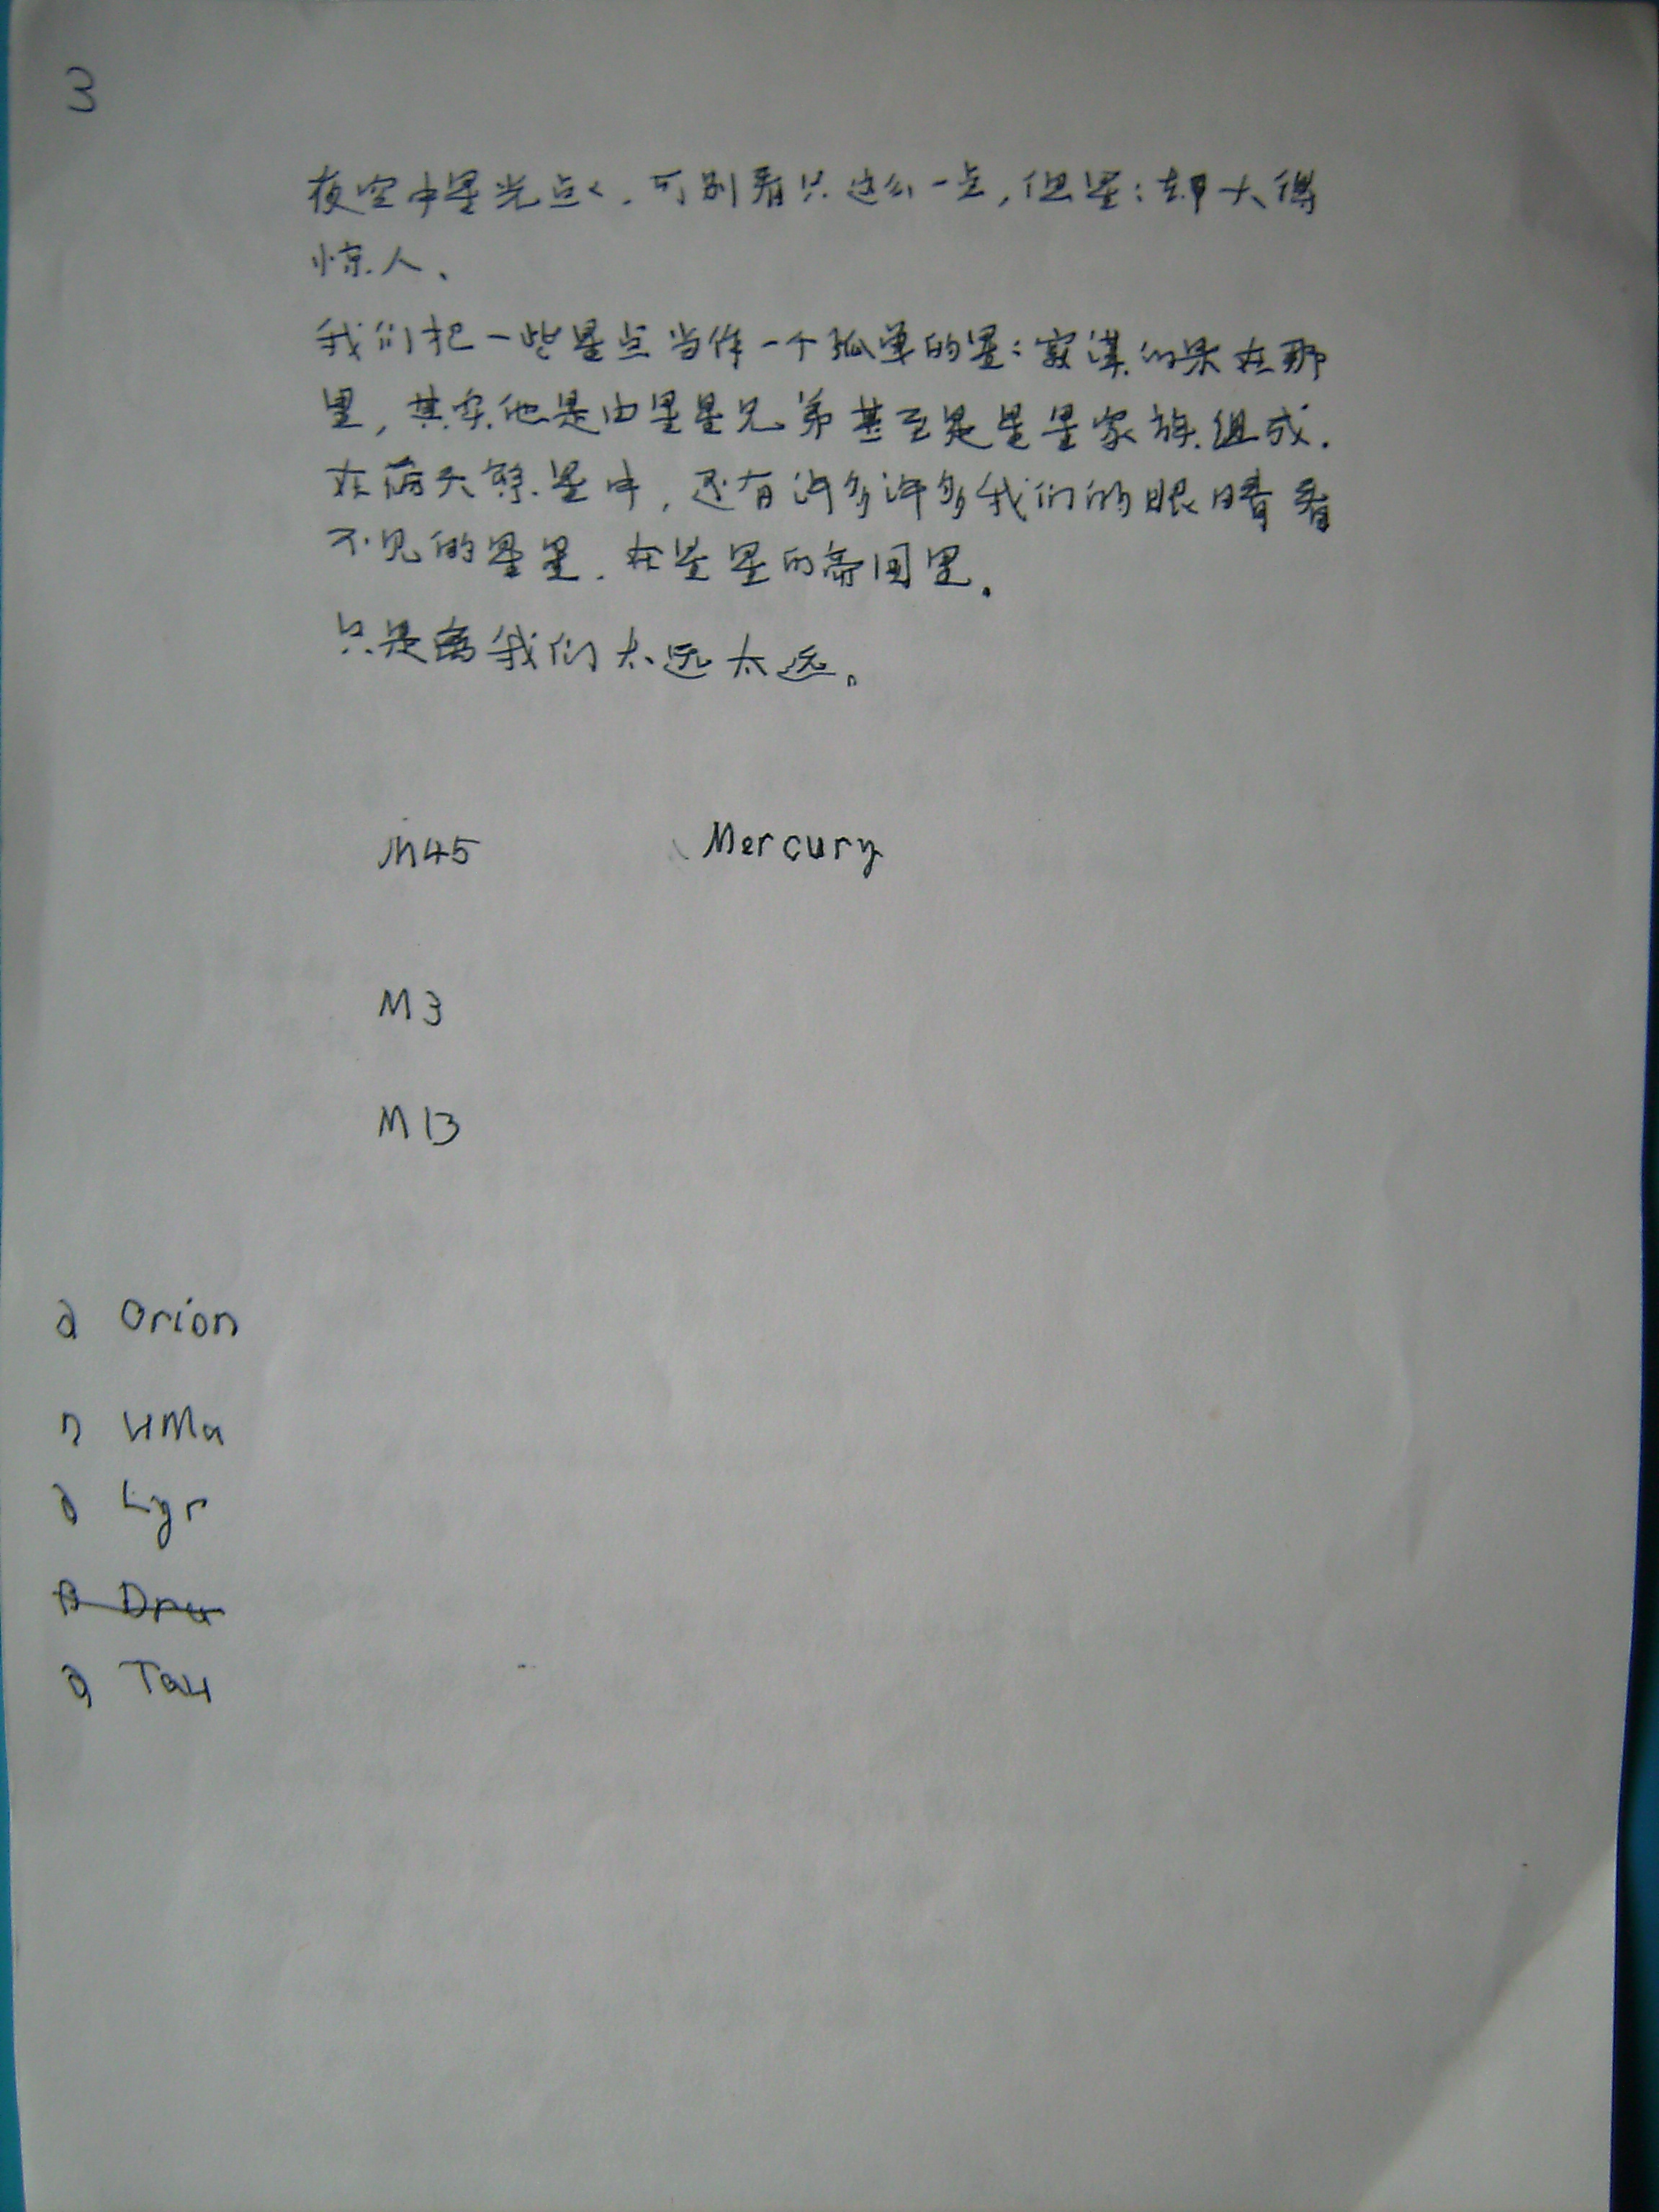 3
夜空中星光点く.可别看只这么一点,但星:却大得
惊人、
我们把一些星点当作一个孤单的星:寂漠的呆在那
里,其实他是由星星兄弟甚至是星星家族组成.
在满天繁星中,还有许多许多我们的眼睛看
不见的星星.在星星的帝国里.
只是离我们太远太远。
M45 Mercury
M3
M13
Orion
UMa
Lyr
Tau